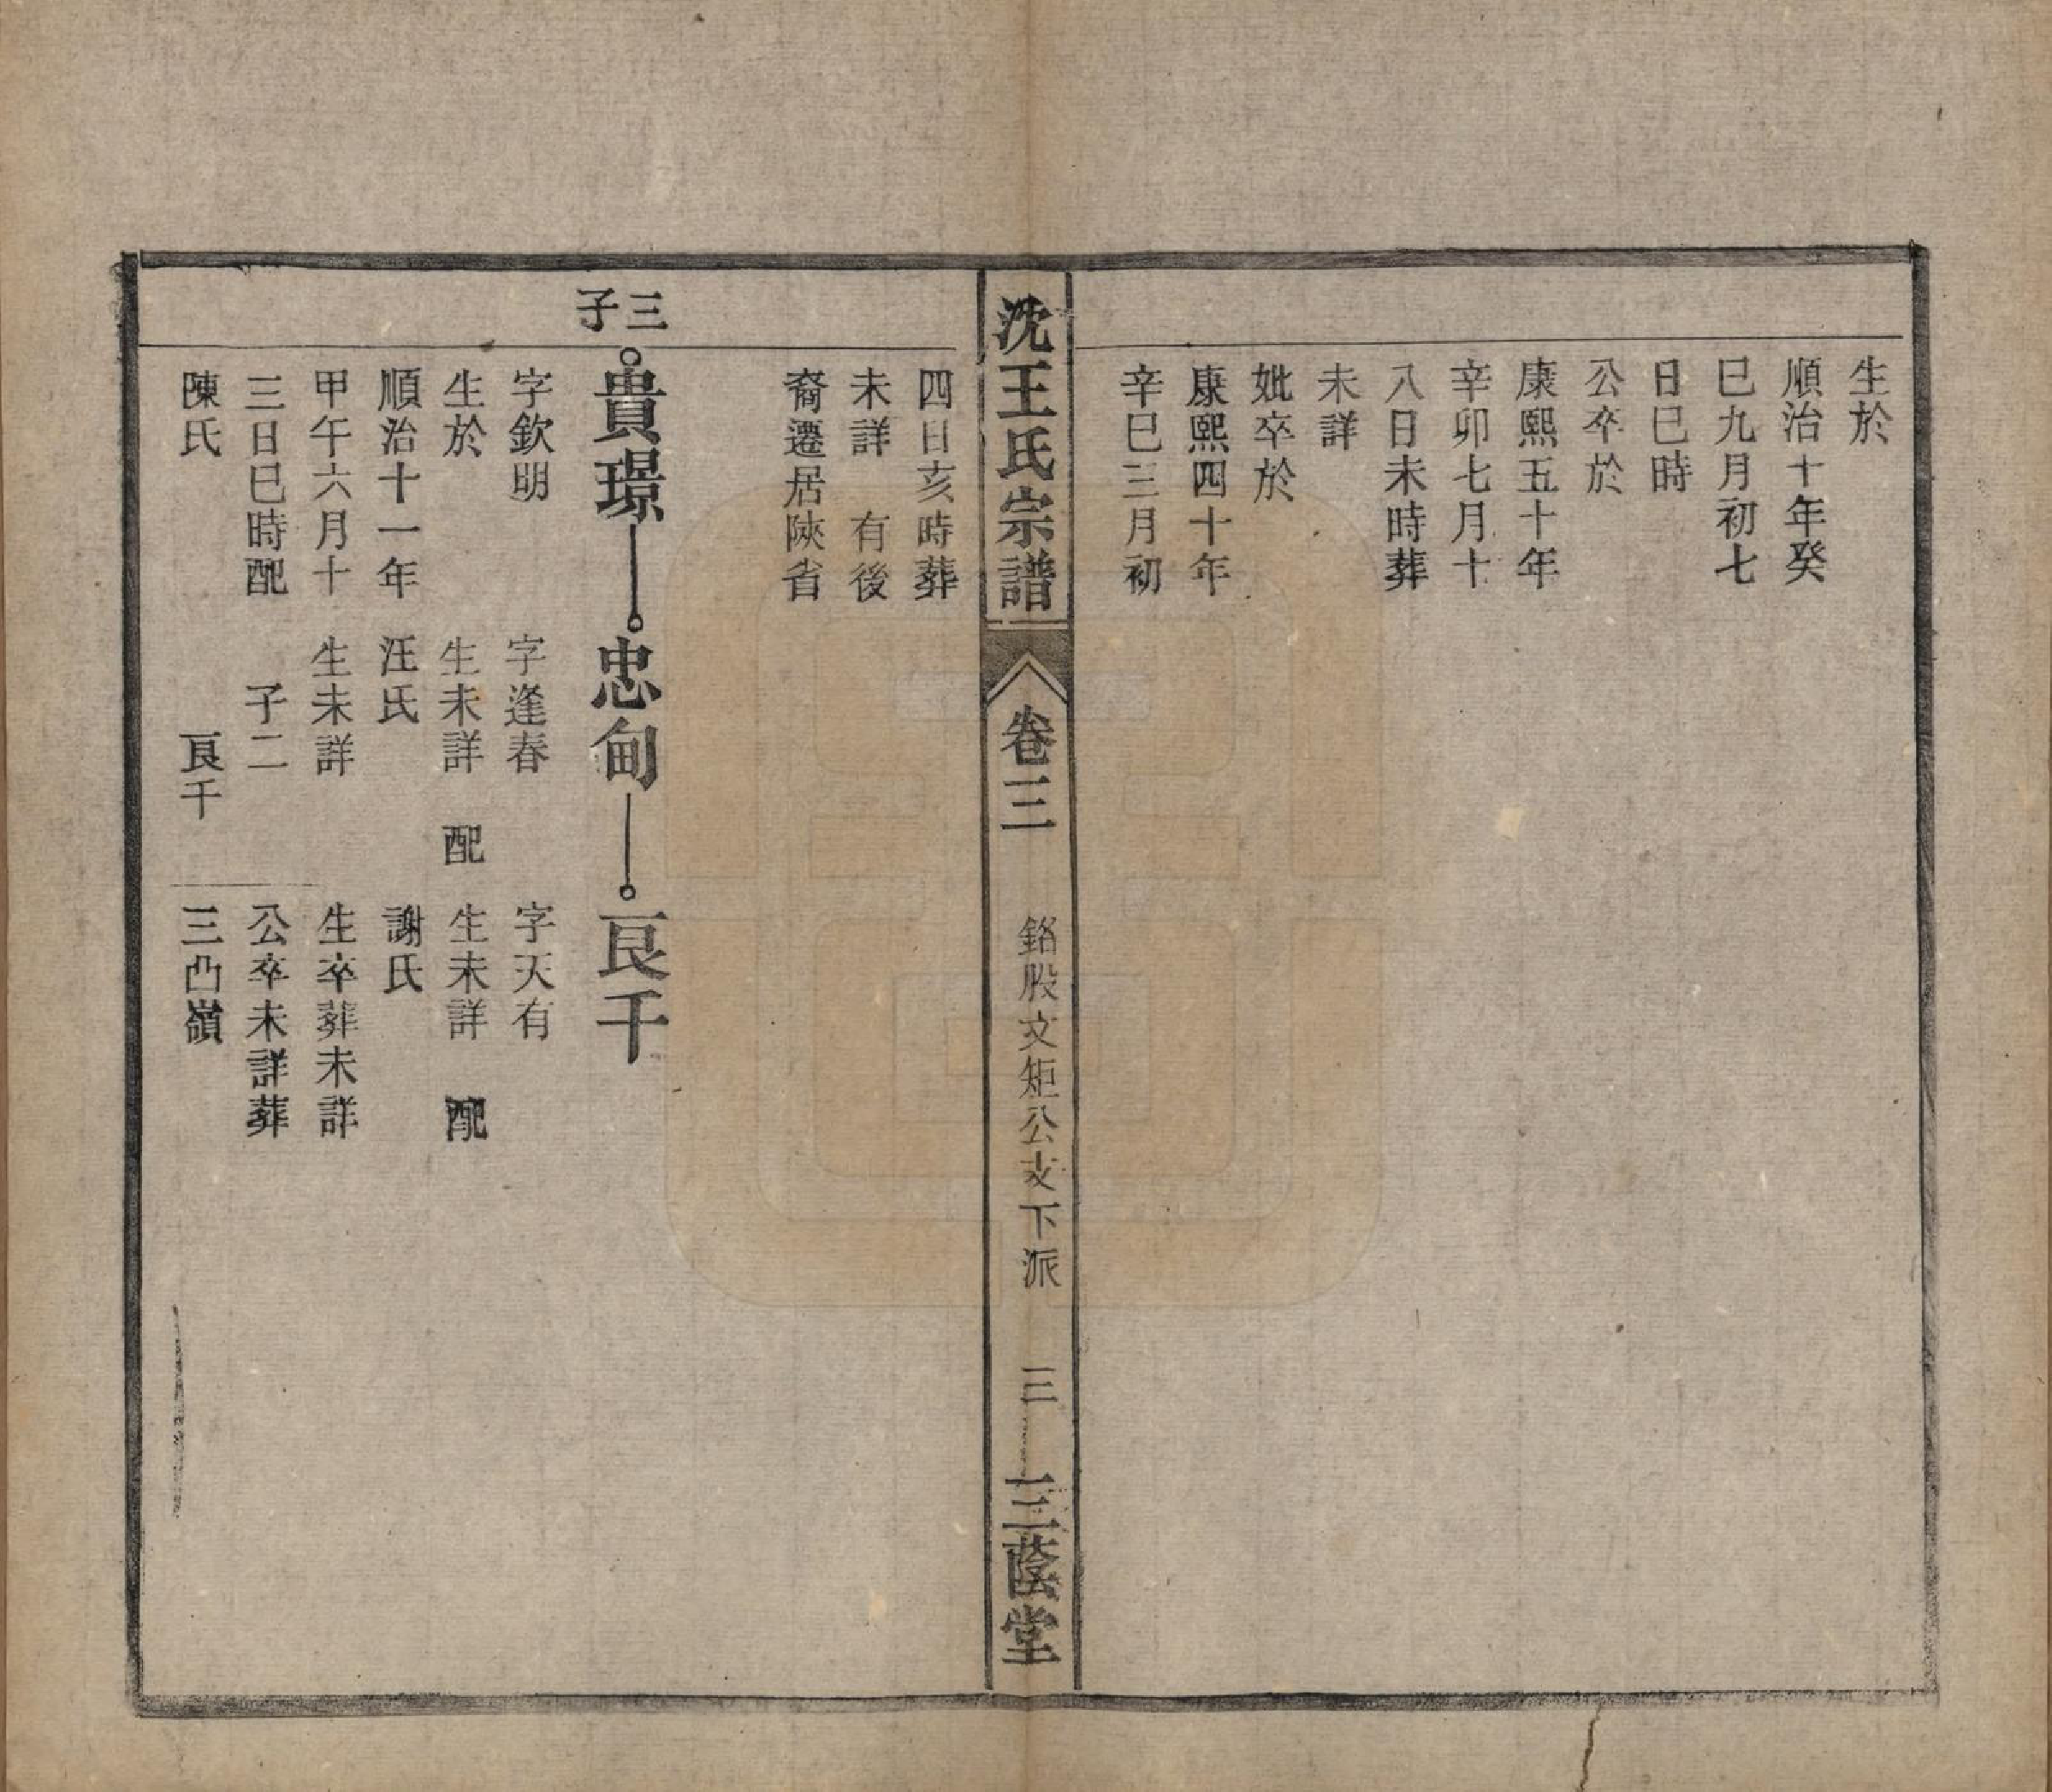 生於
順治十年癸
巳九月初七
日巳時
公卒於
康熙五十年
辛卯七月十
八日未時葬
未詳
妣卒於
康熙四十年
辛巳三月初
沈王氏宗譜
卷三
銘股文矩公支下派
三
三蔭堂
四日亥時葬
未詳 有後
裔遷居陝省
三子
貴璟
忠甸
良千
字欽明
生於
順治十一年
甲午六月十
三日巳時配
陳氏
字逢春
生未詳 配
汪氏
生未詳
子二
良千
字天有
生未詳 配
謝氏
生卒葬未詳
公卒未詳葬
三凸嶺